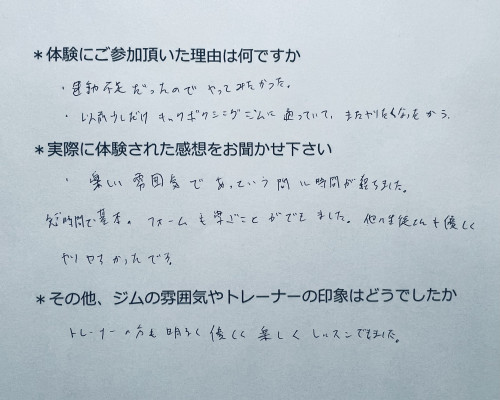 ＊体験にご参加頂いた理由は何ですか
・運動不足だったのでやってみたかった。
・以前少しだけキックボクシングジムに通っていて、またやりたくなったから。
＊実際に体験された感想をお聞かせ下さい
・楽しい雰囲気であっという間に時間が経ちました。
短時間で基本。フォームも学ぶことができました。他の生徒さんも優しく
やりやすかったです。
＊その他、ジムの雰囲気やトレーナーの印象はどうでしたか
トレーナーの方も明るく優しく楽しくレッスンできました。